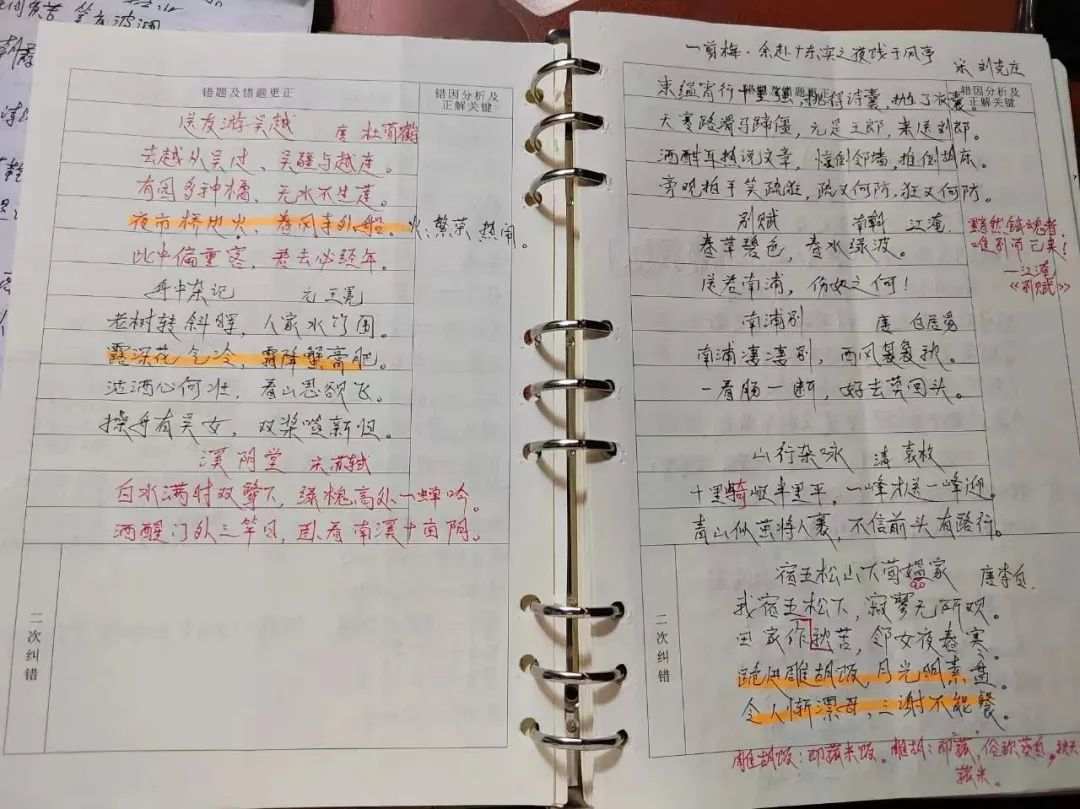 错题及错题更正
错因分析及
正解关键
送友游吴越 唐 杜荀鹤
去越从吴过、吴疆与越连。
有园多种橘、无水不生莲。
夜市桥边火、春风寺外船、火:繁荣、热闹。
此中偏重客、君去必经年。
舟中杂记 元 王冕
老树转斜晖，人家水竹围。
露深花气冷，霜降蟹膏肥。
沽酒心何壮，看山思欲飞。
操舟有吴女，双桨唱新归。
溪阴堂 宋 苏轼
白水满时双鹭下，绿槐高处一蝉吟。
酒醒门外三竿日，困看南溪十亩阴。
二次纠错
一剪梅·余赴广东实之夜饯于风亭
宋 刘克庄
错因分析及
正解关键
束缊宵行十里强，挑得诗囊，抛了衣囊。
天寒路滑马蹄僵，元是王郎，来送刘郎。
酒酣耳热说文章，惊倒邻墙，推倒胡床。
旁观拍手笑疏狂，疏又何防，狂又何防。
别赋 南朝 江淹
春草碧色，春水绿波。
送君南浦，伤如之何！
黯然销魂者，
唯别而已矣！
—江淹
《别赋》
南浦别 唐 白居易
南浦凄凄别，西风袅袅秋。
一看肠一断，好去莫回头。
山行杂咏 清 袁枚
十里崎岖半里平，一峰才送一峰迎。
青山似茧将人裹，不信前头有路行。
二次纠错
宿五松山下荀媪家 唐 李白
我宿五松下，寂寥无所欢。
田家作秋苦，邻女夜舂寒。
跪进雕胡饭，月光明素盘。
令人惭漂母，三谢不能餐。
雕胡饭：即菰米饭。雕胡：即菰，俗称茭白，
菰米。